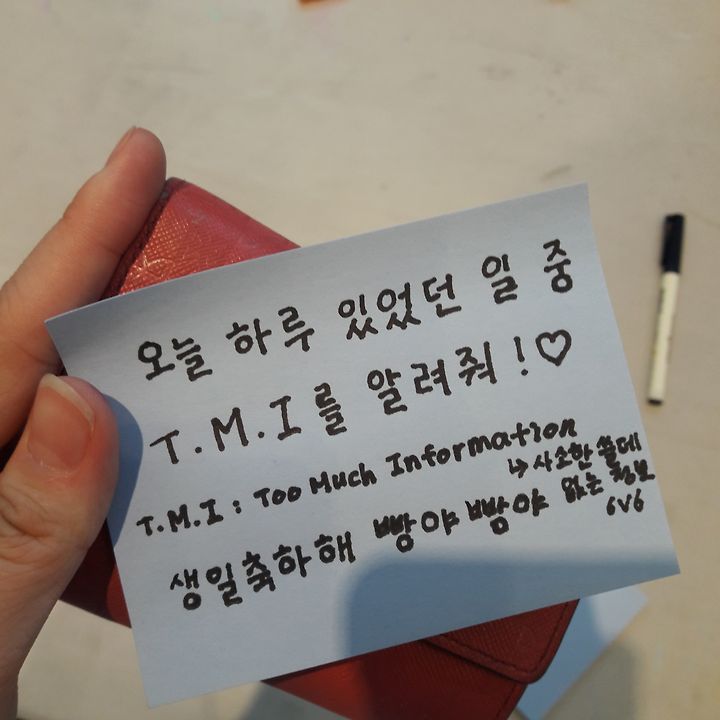 오늘 하루 있었던 일 중
T.M.I를 알려줘!♡
T.M.I : Too Much Information
↳사소한 쓸데
없는 정보
6v6
생일축하해 빵야빵야